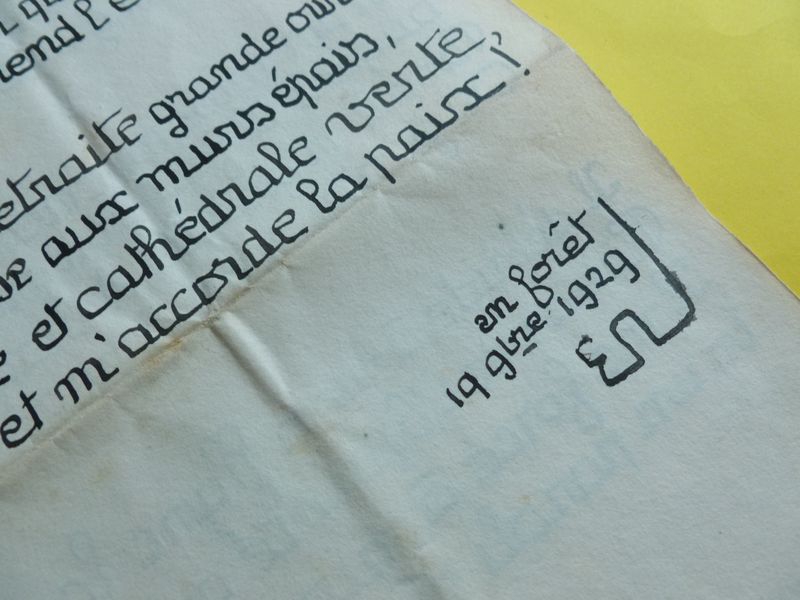 etraite grande ouv
aux murs épais,
et cathédrale verte,
et m'accorde la paix !
en forêt
19 9bre 1929